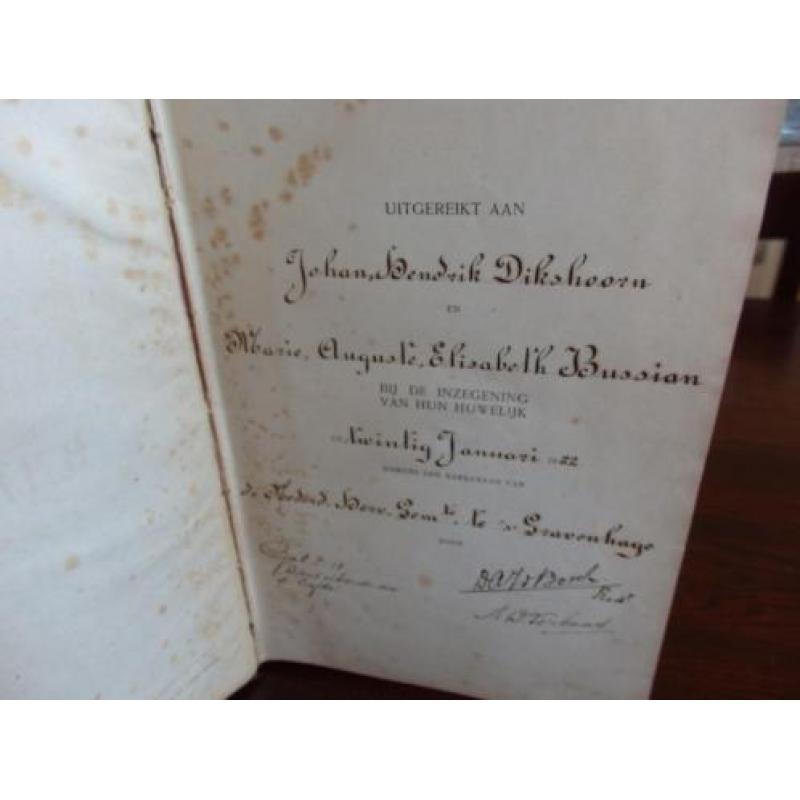 UITGEREIKT AAN
Johan, Hendrik Dikshoorn
EN
Marie, Auguste, Elisabeth Bussian
BIJ DE INZEGENING
VAN HUN HUWELIJK
twintig Januari 1922
NAMENS DEN KERKERAAD VAN
de Nederd. Herv. Gemte. te 's Gravenhage
DOOR